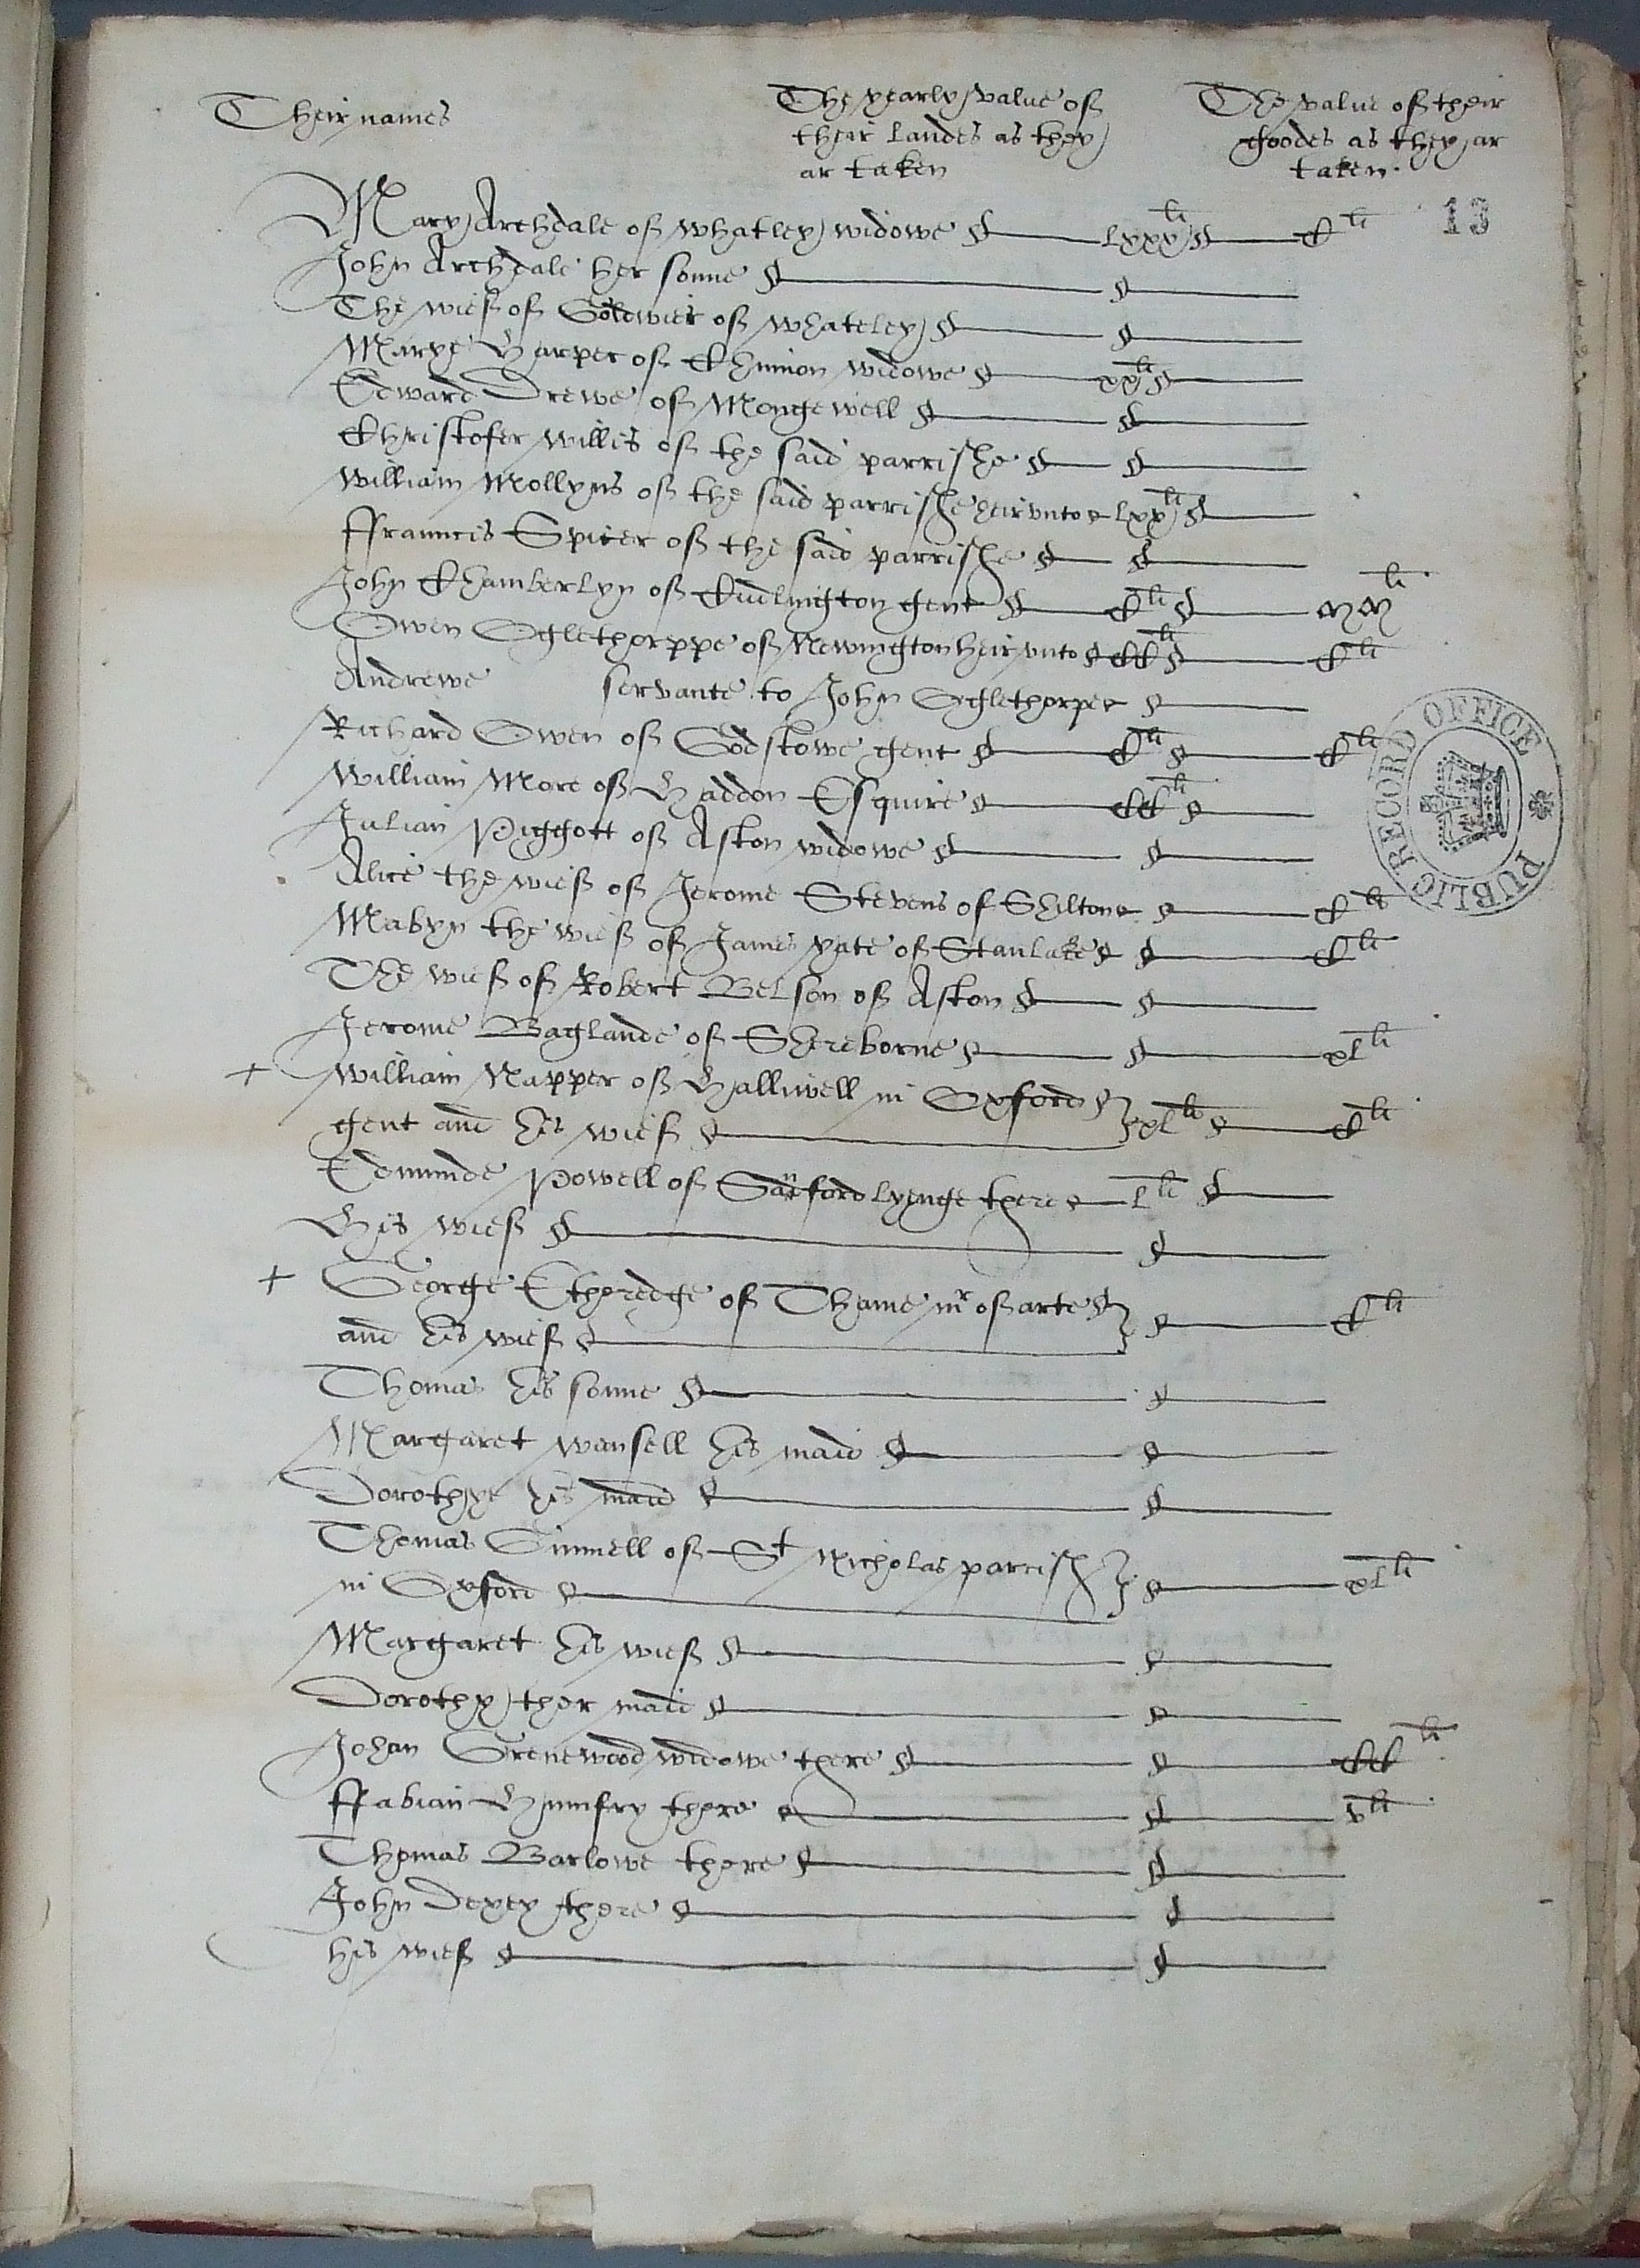 Their names
The yearly value of
their landes as they
ar taken
The value of their
goodes as they ar
taken.
13
Mary Archdale of Whatley widowe lxxx li C li
John Archdale her sonne
The wief of Goldwier of Whateley
Marye Harper of Chinnon widowe xx li
Edward Drewe of Mongewell
Christofer Willis of the said parrishe
William Mollyns of the said parrishe heir unto lxx li
ffrauncis Spicer of the said parrishe
John Chamberlyn of Cudlington gent C li MM li
Owen Oglethorppe of Newington heir unto CC li C li
Andrewe servante to John Oglethorpe
Richard Owen of Godstowe gent C li C li
William More of Haddon Esquire CC li
Julian Piggott of Aston widowe
Alice the wief of Jerome Stevens of Shilton C li
Mabyn the wief of James yate of Stanlake C li
The wief of Robert Belson of Aston
Jerome Baglande of Shereborne xl li
+ William Napper of Halliwell in Oxford
gent and his wief xl li C li
Edmunde Powell of Sanford lyenge there l li
His wief
+ George Etheredge of Thame mr of arte
and his wief C li
Thomas his sonne
Margaret Wansell his maid
Dorothye his maid
Thomas Sinnell of St Nicholas parrish
in Oxford xl li
Margaret his wief
Dorothy ther maid
Johan Grenewood widowe there CC li
ffabian Humfry there v li
Thomas Barlowe there
John Dexey there
his wief
PUBLIC RECORD OFFICE